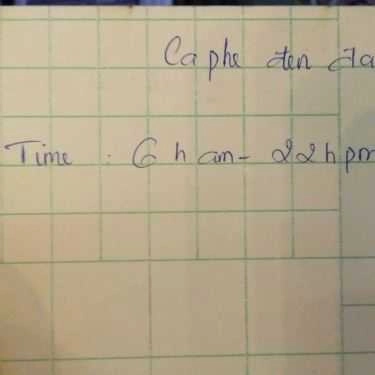 Caphe đen đa
Time : 6 h am - 22h pm